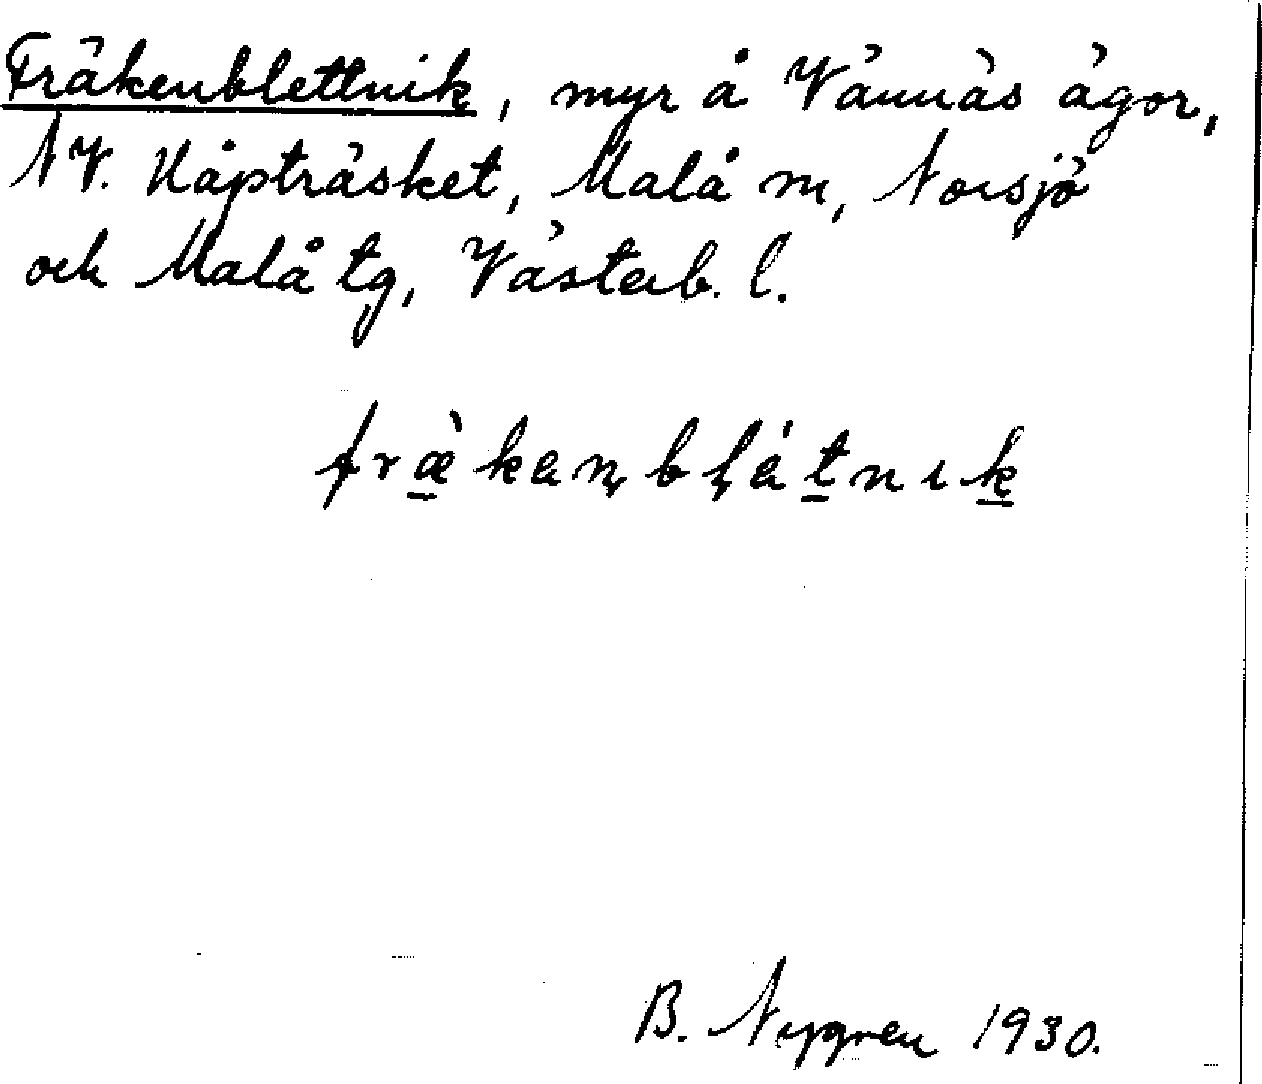 Fräkenblettnik, myr å Vännäs ägor,
NV. Kåpträsket, Malå sn, Norsjö
och Malå tg, Västerb. l.
fræ̀kenblátnık
B. Nygren 1930.